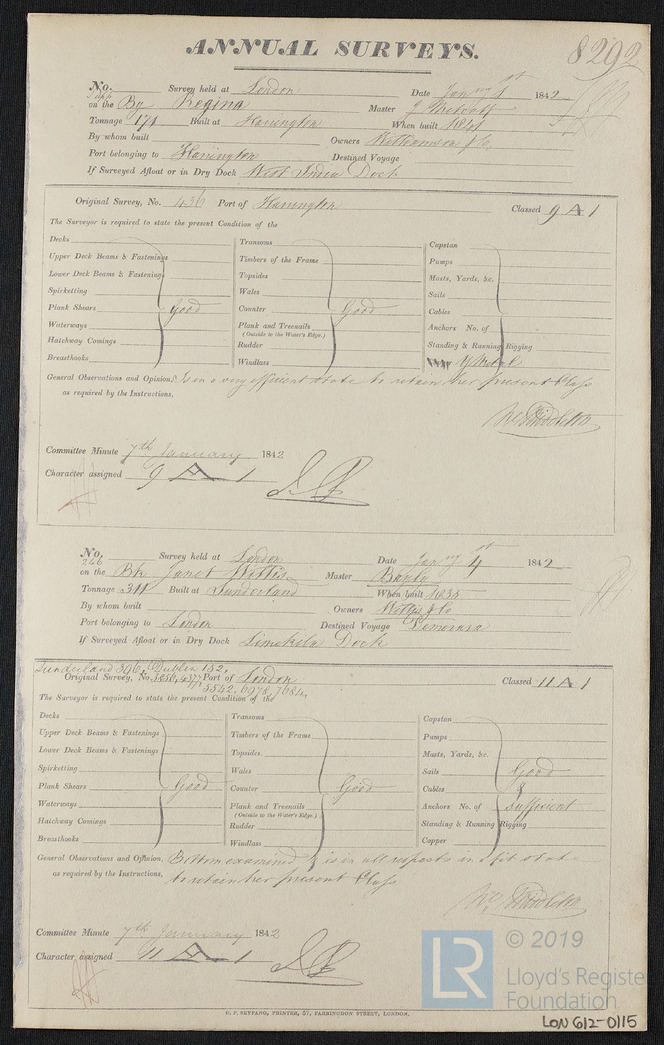 ANNUAL SURVEYS.
8292
No. Survey held at London Date Jany 1st 1842
on the Bg Regina Master J Metcalf
Tonnage 171 Built at Harrington When built
By whom built Owners Williamson & Co
Port belonging to Harrington Destined Voyage
If Surveyed Afloat or in Dry Dock West India Dock
Original Survey, No. 436 Port of Harrington Classed 9 A 1
The Surveyor is required to state the present Condition of the
Decks Transoms Capstan
Upper Deck Beams & Fastenings Timbers of the Frame Pumps
Lower Deck Beams & Fastenings Topsides Masts, Yards, &c.
Spirketting Wales Sails
Plank Shears Good Counter Good Cables
Waterways Plank and Treenails Anchors No. of
(Outside to the Water's Edge.)
Hatchway Comings Rudder Standing & Running Rigging
Breasthooks Windlass Y Metal
General Observations and Opinion, Is in a very efficient state to retain her present Class
as required by the Instructions,
Wm Middleton
Committee Minute 7th January 1842
Character assigned 9 A 1
No. 266 Survey held at London Date Jany 4th 1842
on the Bk Janet Willis Master
Tonnage 311 Built at Sunderland When built 1835
By whom built Owners Willis & Co
Port belonging to London Destined Voyage Demerara
If Surveyed Afloat or in Dry Dock Limekiln Dock
Sunderland 396, Dublin 152,
Original Survey, No. 3856, 4377, Port of London Classed 11 A 1
5542, 6978, 7684,
The Surveyor is required to state the present Condition of the
Decks Transoms Capstan
Upper Deck Beams & Fastenings Timbers of the Frame Pumps
Lower Deck Beams & Fastenings Topsides. Masts, Yards, &c.
Spirketting Wales Sails Good
Plank Shears Good Counter Good Cables &
Waterways Plank and Treenails Anchors No. of Sufficient
(Outside to the Water's Edge.)
Hatchway Comings Rudder Standing & Running Rigging
Breasthooks Windlass Copper
General Observations and Opinion, Bottom examined & is in all respects in a fit state
as required by the Instructions, to retain her present Class
Wm Middleton
Committee Minute 7th January 1842
Character assigned 11 A 1
C. F. SEYFANG, PRINTER, 57, FARRINGDON STREET, LONDON.
LR © 2019
Lloyd's Register
Foundation
LON 612-0115